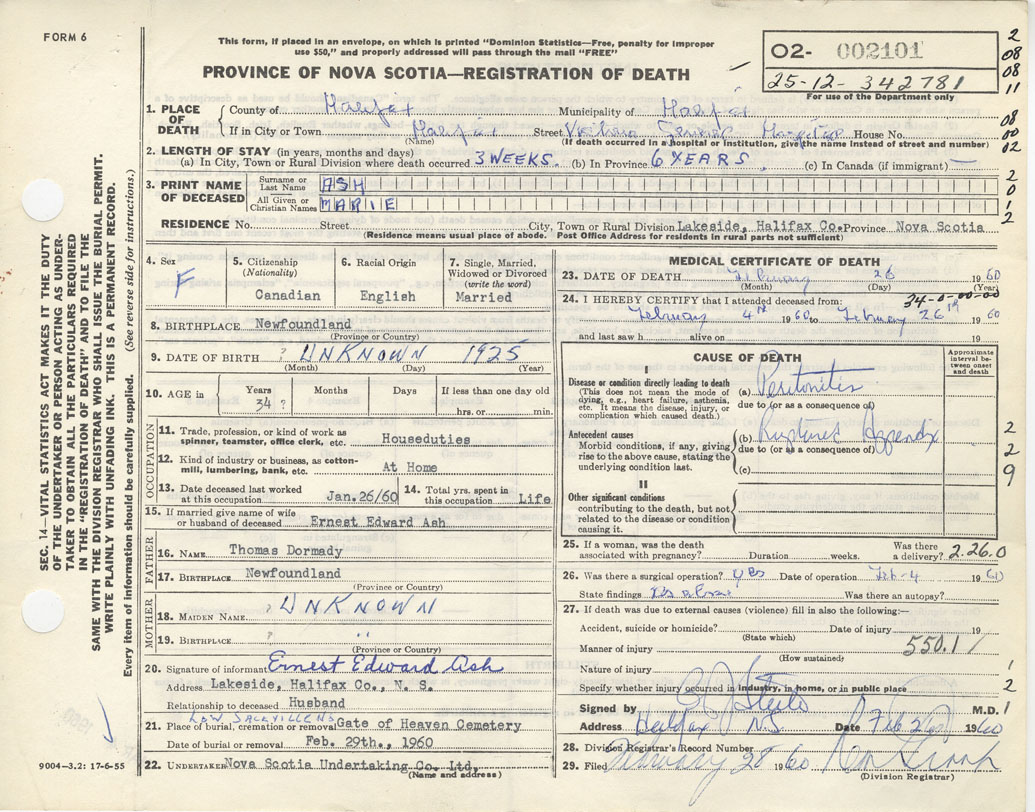 FORM 6
This form, if placed in an envelope, on which is printed "Dominion Statistics—Free, penalty for improper
use $50," and properly addressed will pass through the mail "FREE"
PROVINCE OF NOVA SCOTIA—REGISTRATION OF DEATH
O2- 002101
25-12-342781
For use of the Department only
2
08
08
11
1. PLACE OF DEATH
County of Halifax Municipality of Halifax
If in City or Town Halifax Street Victoria General Hospital House No.
(Name) (If death occurred in a hospital or institution, give the name instead of street and number)
08
00
02
2. LENGTH OF STAY (in years, months and days)
(a) In City, Town or Rural Division where death occurred 3 WEEKS. (b) In Province 6 YEARS (c) In Canada (if immigrant) —
3. PRINT NAME OF DECEASED
Surname or Last Name ASH
All Given or Christian Names MARIE
2
0
1
2
RESIDENCE No. Street City, Town or Rural Division Lakeside, Halifax Co. Province Nova Scotia
(Residence means usual place of abode. Post Office Address for residents in rural parts not sufficient)
4. Sex F
5. Citizenship (Nationality) Canadian
6. Racial Origin English
7. Single, Married, Widowed or Divorced (write the word) Married
8. BIRTHPLACE Newfoundland
(Province or Country)
9. DATE OF BIRTH ? UNKNOWN 1925
(Month) (Day) (Year)
10. AGE in Years 34 ? Months Days If less than one day old hrs. or min.
OCCUPATION
11. Trade, profession, or kind of work as spinner, teamster, office clerk, etc. Houseduties
12. Kind of industry or business, as cotton-mill, lumbering, bank, etc. At Home
13. Date deceased last worked at this occupation Jan.26/60
14. Total yrs. spent in this occupation Life
15. If married give name of wife or husband of deceased Ernest Edward Ash
FATHER
16. NAME Thomas Dormady
17. BIRTHPLACE Newfoundland
(Province or Country)
MOTHER
18. MAIDEN NAME ? UNKNOWN
19. BIRTHPLACE ? "
(Province or Country)
20. Signature of informant Ernest Edward Ash
Address Lakeside, Halifax Co., N. S.
Relationship to deceased Husband
LOW SACKVILLE NS
21. Place of burial, cremation or removal Gate of Heaven Cemetery
Date of burial or removal Feb. 29th., 1960
22. UNDERTAKER Nova Scotia Undertaking Co. Ltd.
(Name and address)
MEDICAL CERTIFICATE OF DEATH
23. DATE OF DEATH February 26 1960
(Month) (Day)
24. I HEREBY CERTIFY that I attended deceased from: 34-0-00-00
February 4th 1960 to February 26th 1960
and last saw h alive on 19
CAUSE OF DEATH
Approximate interval between onset and death
I
Disease or condition directly leading to death
(This does not mean the mode of dying, e.g., heart failure, asthenia, etc. It means the disease, injury, or complication which caused death.)
(a) Peritonitis
due to (or as a consequence of)
Antecedent causes
Morbid conditions, if any, giving rise to the above cause, stating the underlying condition last.
(b) Ruptured Appendix
due to (or as a consequence of)
(c)
2
2
9
II
Other significant conditions contributing to the death, but not related to the disease or condition causing it.
25. If a woman, was the death associated with pregnancy? Duration weeks. Was there a delivery? 2.26.0
26. Was there a surgical operation? yes Date of operation Feb-4 1960
State findings as above Was there an autopsy?
27. If death was due to external causes (violence) fill in also the following:—
Accident, suicide or homicide? Date of injury 19
(State which)
Manner of injury 550.1
(How sustained)
Nature of injury
Specify whether injury occurred in industry, in home, or in public place
1
2
1
Signed by M.D.
Address Halifax N.S. Date Feb 26 1960
28. Division Registrar's Record Number
29. Filed February 28 1960
(Division Registrar)
SEC. 14—VITAL STATISTICS ACT MAKES IT THE DUTY
OF THE UNDERTAKER OR PERSON ACTING AS UNDER-
TAKER TO OBTAIN ALL THE PARTICULARS REQUIRED
IN THE "REGISTRATION OF DEATH" AND TO FILE THE
SAME WITH THE DIVISION REGISTRAR WHO SHALL ISSUE THE BURIAL PERMIT.
WRITE PLAINLY WITH UNFADING INK. THIS IS A PERMANENT RECORD.
Every item of information should be carefully supplied. (See reverse side for instructions.)
9004-3.2: 17-6-55